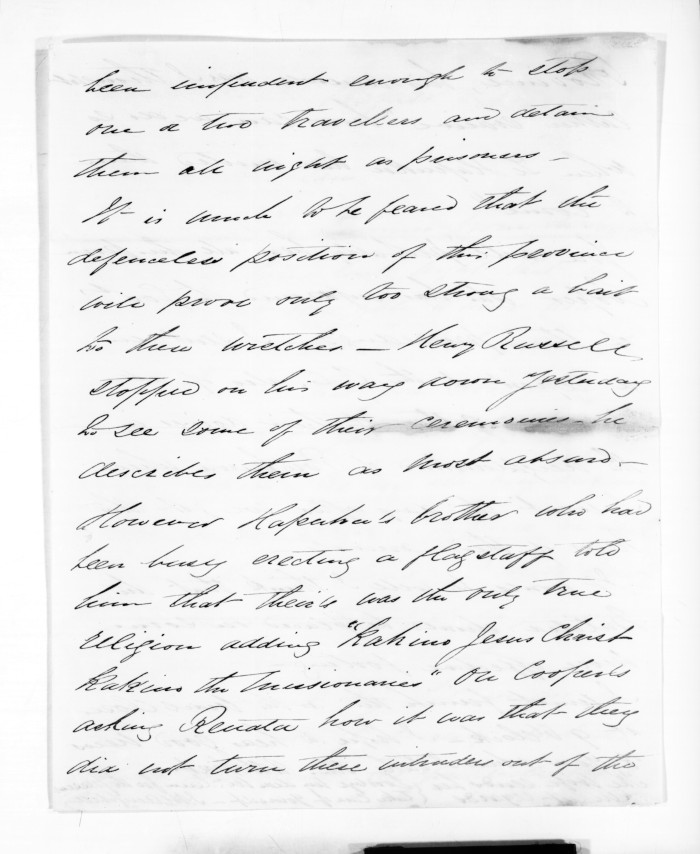 been impudent enough to stop
one or two travellers and detain
them all night as prisoners -
It is much to be feared that the
defenceless position of this province
will prove only too strong a bait
to these wretches - Henry Russell
stopped on his way down yesterday
to see some of their ceremonies - he
describes them as most absurd -
However brother who had
been busy erecting a flagstaff told
him that theirs was the only true
religion adding "Kakino Jesus Christ
Kakino the Missionaries" On Cooper's
asking Renata how it was that they
did not turn these intruders out of the